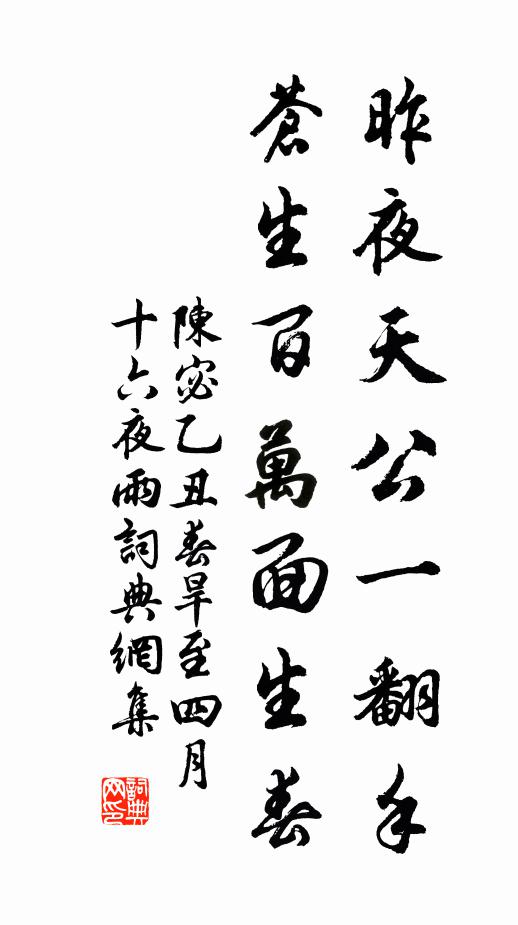 昨夜天公一翻手
蒼生百萬面生春
陳宓乙丑春旱至四月
十六夜雨詞典網集
詞典網印